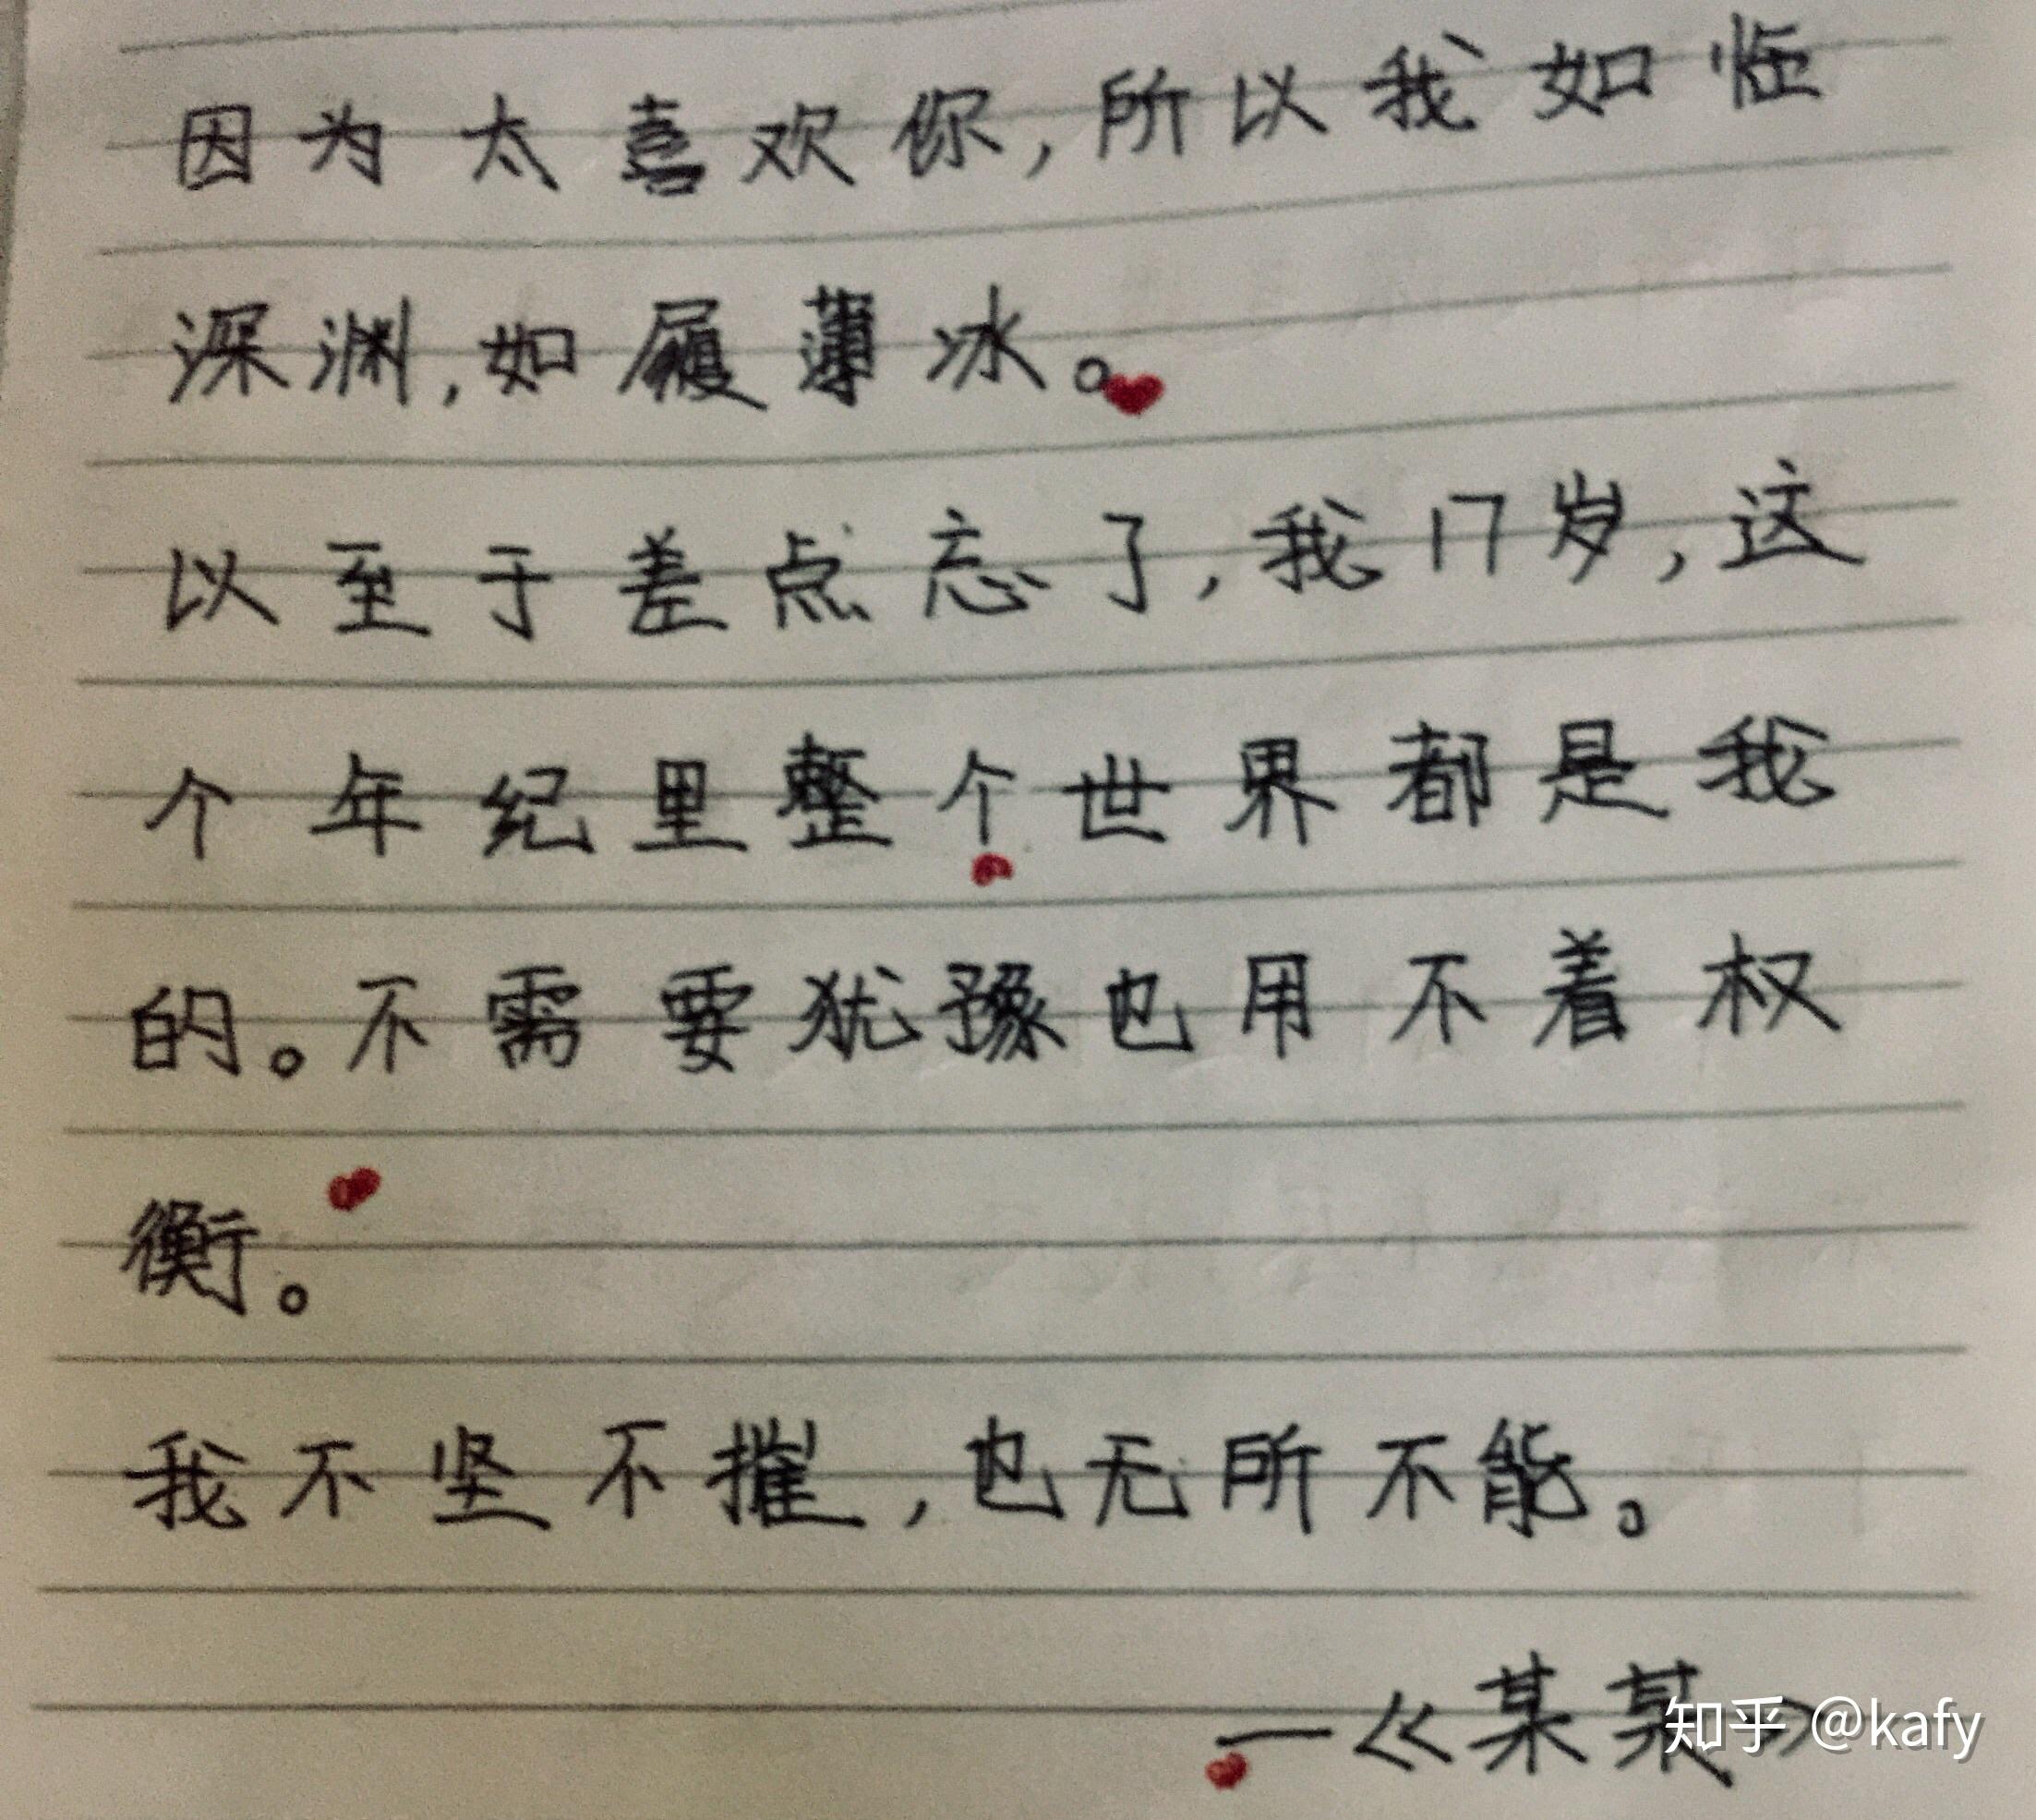 因为太喜欢你,所以我如临
深渊,如履薄冰。
以至于差点忘了,我17岁,这
个年纪里整个世界都是我
的。不需要犹豫也用不着权
衡。
我不坚不摧,也无所不能。
—《某某》
知乎 @kafy